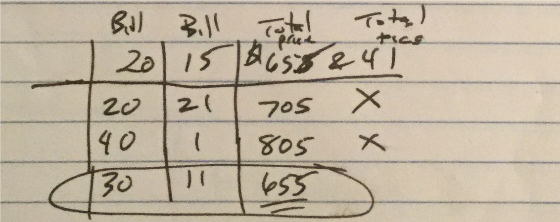 Bill Bill Total price Total pieces
20 15 $655 & 41
20 21 705 X
40 1 805 X
30 11 655